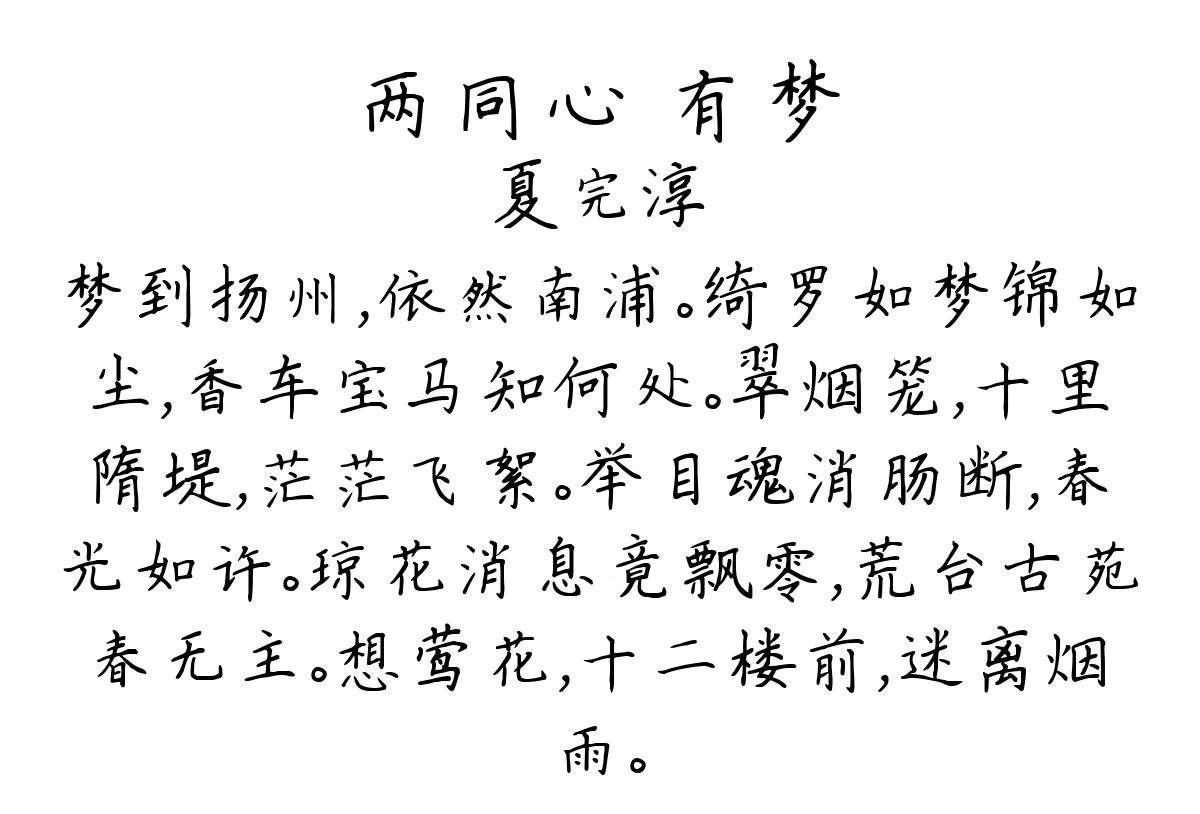 两同心 有梦
夏完淳
梦到扬州,依然南浦。绮罗如梦锦如
尘,香车宝马知何处。翠烟笼,十里
隋堤,茫茫飞絮。举目魂消肠断,春
光如许。琼花消息竟飘零,荒台古苑
春无主。想莺花,十二楼前,迷离烟
雨。